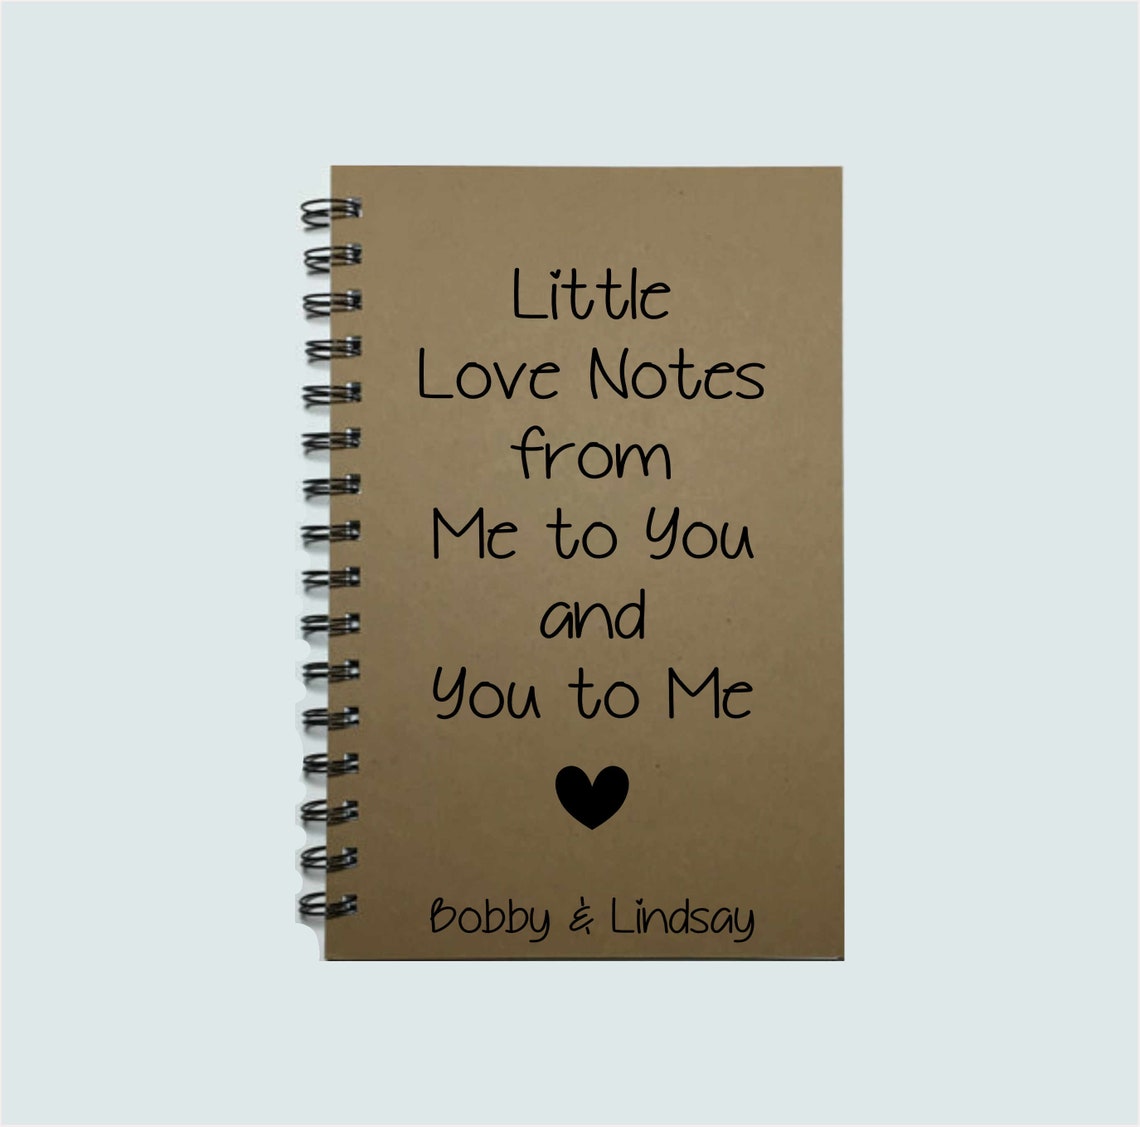 Little
Love Notes
from
Me to You
and
You to Me
Bobby & Lindsay